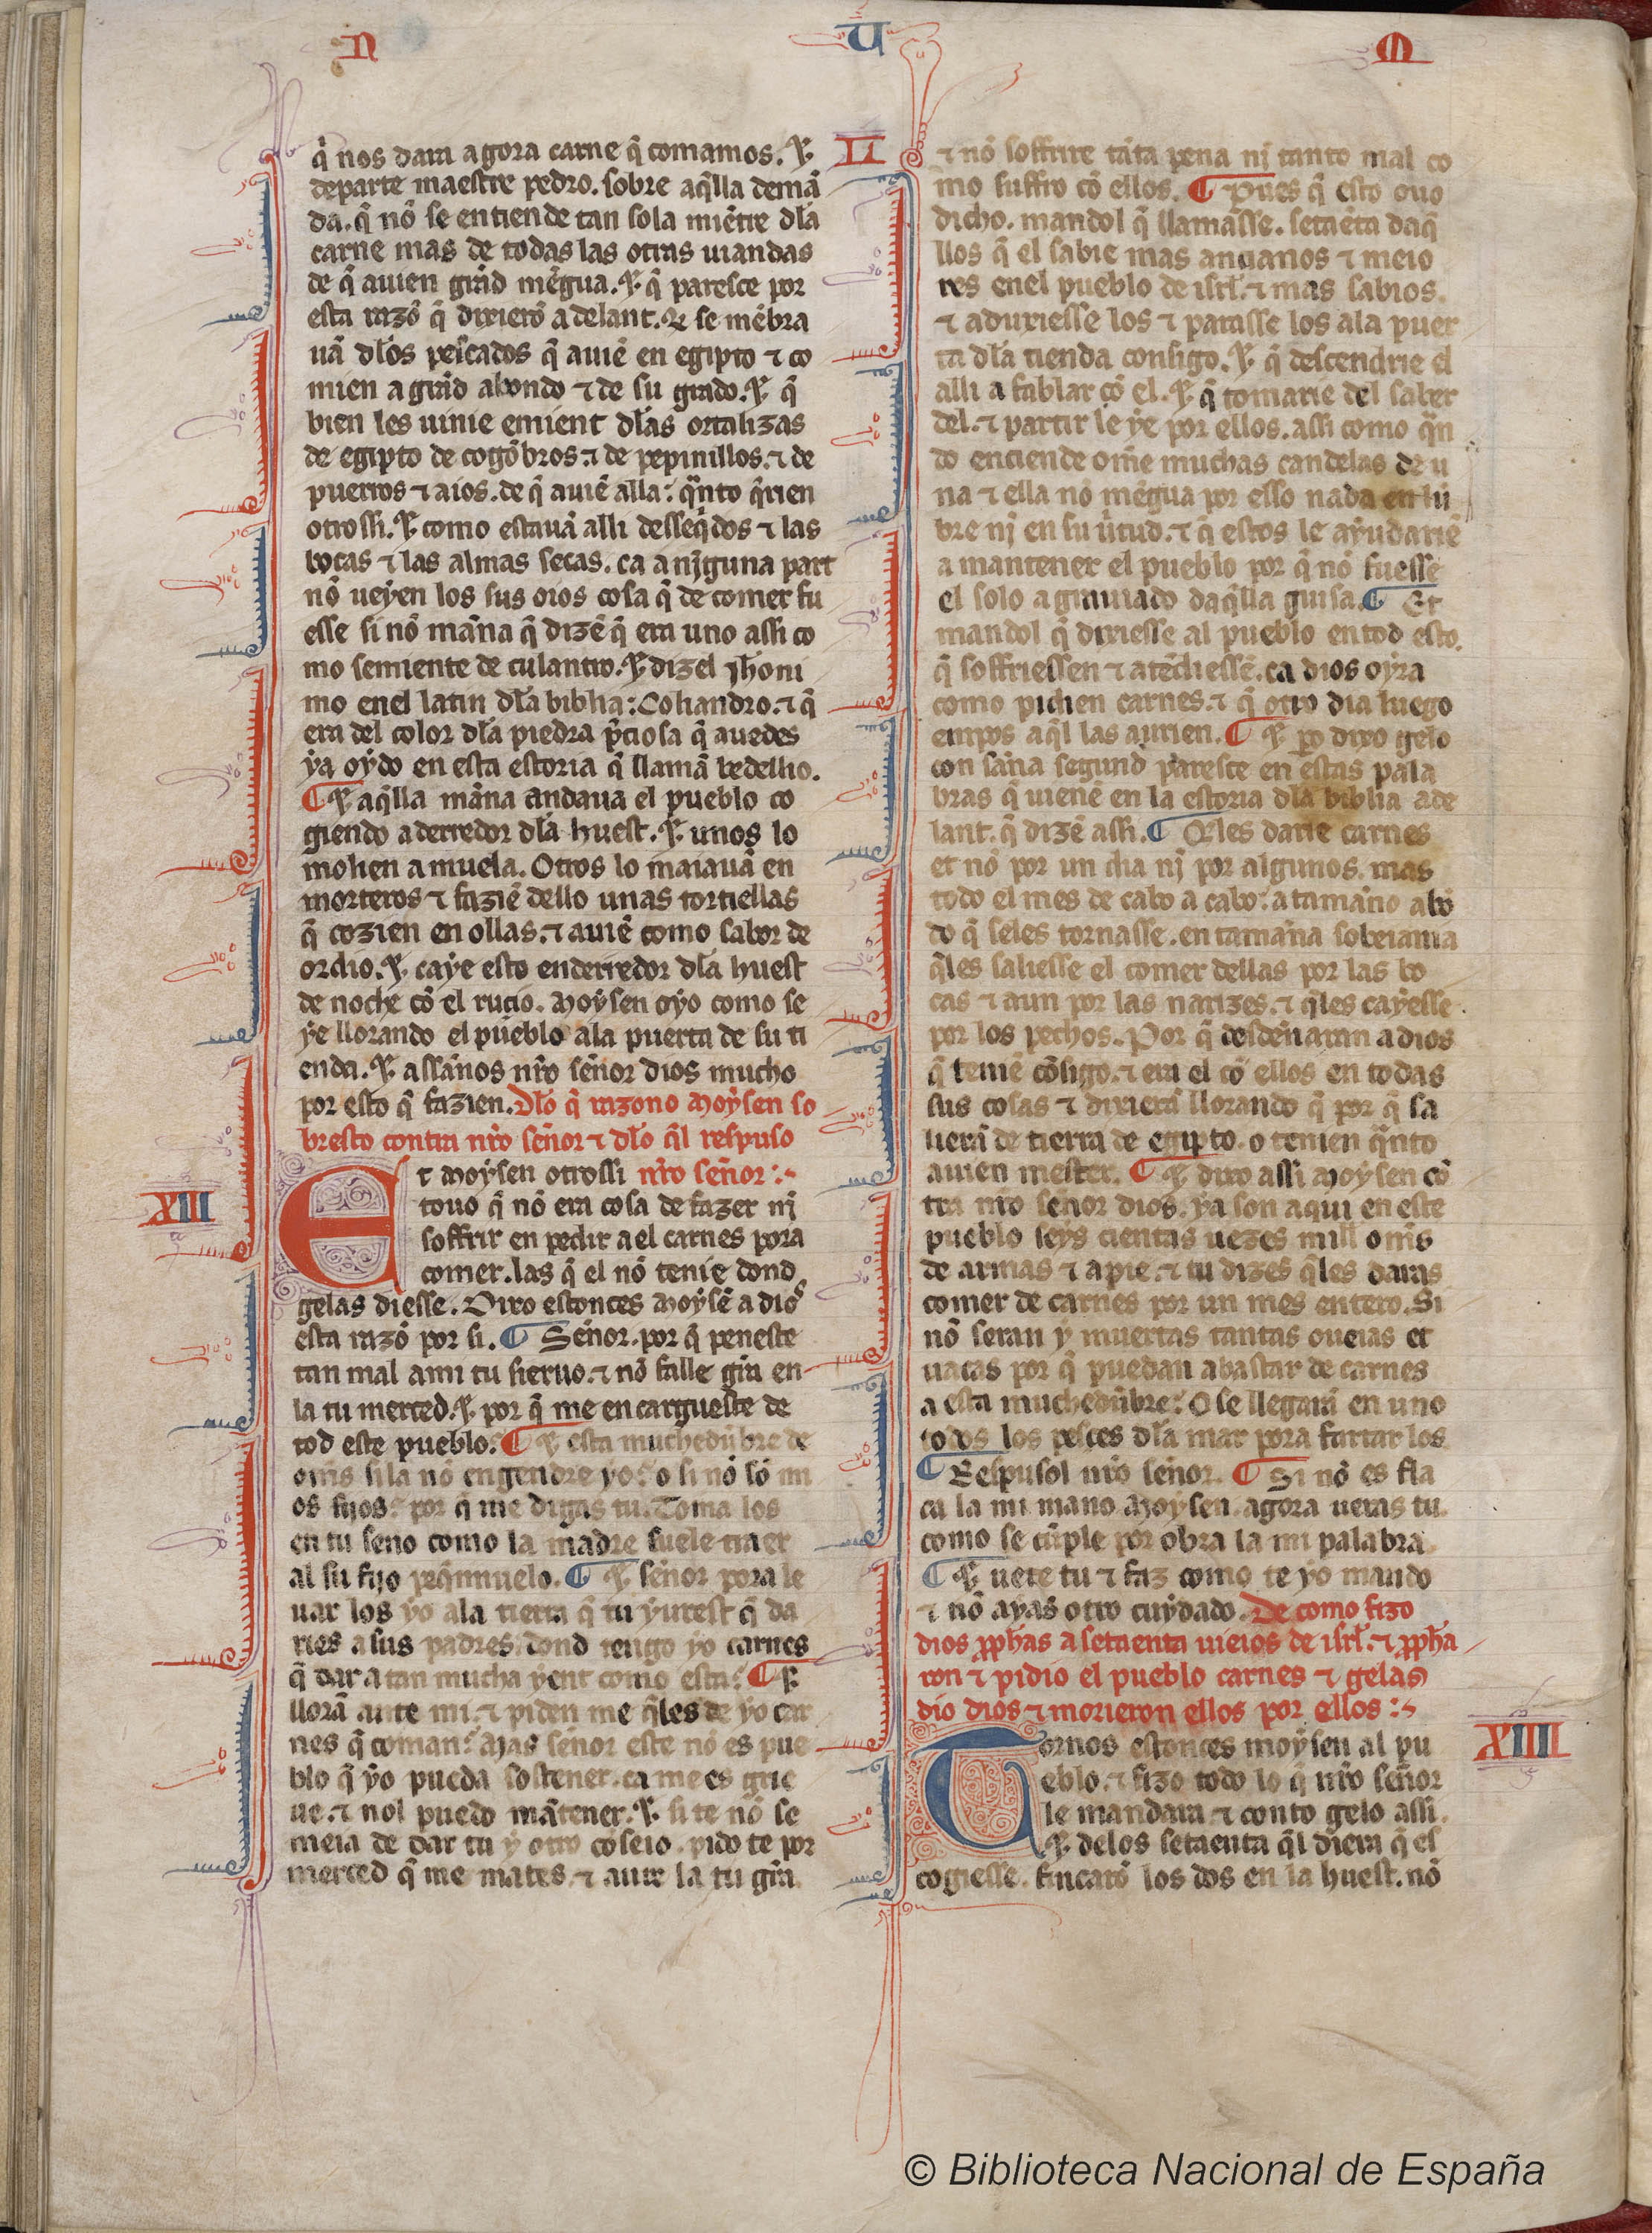 N U M
q̃ nos dara agora carne q̃ comamos. ⁊
departe maestre pedro. sobre aq̃lla demã
da. q̃ nõ se entiende tan sola miẽtre dła
carne mas de todas las otras uiandas
de q̃ auien grãd mẽgua. ⁊ q̃ paresce por
esta razõ q̃ dixierõ adelant. ⁊ se mẽbra
uã dłos pescados q̃ auiẽ en egipto ⁊ co
mien a grãd abondo ⁊ de su grado. ⁊ q̃
bien les uinie emient dłas ortalizas
de egipto de cogõbros. ⁊ de pepinillos. ⁊ de
puerros ⁊ aios. de q̃ auiẽ alla: q̃nto q̃rien
otrossi. ⁊ como estauã alli desseq̃dos ⁊ las
bocas ⁊ las almas secas. ca a nj̃guna part
nõ ueyen los sus oios cosa q̃ de comer fu
esse si nõ mãna q̃ dizẽ q̃ era uno assi co
mo semiente de culantro. ⁊ dizel Jħoni
mo enel latin dła biblia: Coliandro. ⁊ q̃
era del color dła piedra p̃ciosa q̃ auedes
ya oydo en esta estoria q̃ llamã bedellio.
¶ ⁊ aq̃lla mãna andaua el pueblo co
giendo aderredor dła huest. ⁊ unos lo
molien a muela. Otros lo maiauã en
morteros ⁊ faziẽ dello unas tortiellas
q̃ cozien en ollas. ⁊ auiẽ como sabor de
ordio. ⁊ caye esto enderredor dła huest
de noche cõ el rucio. Moysen oyo como se
ye llorando el pueblo ala puerta de su ti
enda. ⁊ assãnos nr̃o señor dios mucho
por esto q̃ fazien. Dło q̃ razono Moysen so
bresto contra nr̃o señor ⁊ dło q̃l respuso
XII
Et Moysen otrossi nr̃o señor :~
touo q̃ nõ era cosa de fazer nj̃
soffrir en pedir a el carnes pora
comer. las q̃ el nõ tenie dond
gelas diesse. Dixo estonces Moysẽ a dios
esta razõ por si. ¶ Señor. por q̃ peneste
tan mal a mi tu sieruo. ⁊ nõ falle gr̃a en
la tu merced. ⁊ por q̃ me encargueste de
tod este pueblo: ¶ ⁊ esta muchedũbre de
om̃s si la nõ engendre yo: o si nõ sõ mi
os fijos: por q̃ me digas tu. Toma los
en tu seno como la madre suele traer
al su fijo peq̃nnuelo. ¶ ⁊ señor pora le
uar los yo ala tierra q̃ tu yurest q̃ da
ries a sus padres. dond tengo yo carnes
q̃ dar a tan mucha yent como esta: ¶ ⁊
llorã ante mi. ⁊ piden me q̃les de yo car
nes q̃ coman: Mas señor este nõ es pue
blo q̃ yo pueda sostener. ca me es grie
ue. ⁊ nol puedo mãtener. ⁊ si te nõ se
meia de dar tu y otro cõseio. pido te por
merced q̃ me mates. ⁊ aure la tu gr̃a.
II
⁊ nõ soffrire tãta pena nj̃ tanto mal co
mo suffro cõ ellos. ¶ Pues q̃ esto ouo
dicho. mandol q̃ llamasse. setaẽta daq̃
llos q̃ el sabie mas ancianos ⁊ meio
res enel pueblo de isrł. ⁊ mas sabios.
⁊ aduxiesse los ⁊ parasse los ala puer
ta dła tienda consigo. ⁊ q̃ descendrie el
alli a fablar cõ el. ⁊ q̃ tomarie del saber
del. ⁊ partir le ye por ellos. assi como q̃n
do enciende om̃e muchas candelas de u
na ⁊ ella nõ mẽgua por esso nada en lũ
bre nj̃ en su ũtud. ⁊ q̃ estos le ayudariẽ
a mantener el pueblo por q̃ nõ fuesse
el solo agrauiado daq̃lla guisa. ¶ Et
mandol q̃ dixiesse al pueblo en tod esto.
q̃ soffriessen ⁊ atẽdiessẽ. ca dios oyra
como pidien carnes. ⁊ q̃ otro dia luego
empos aq̃l las aurien. ¶ ⁊ p̃o dixo gelo
con sãna segund paresce en estas pala
bras q̃ uienẽ en la estoria dła biblia ade
lant. q̃ dizẽ assi. ¶ Q̃les darie carnes
et nõ por un dia nj̃ por algunos. mas
todo el mes de cabo a cabo: a tamãno abõ
do q̃ seles tornasse. en tamãna soberiania
q̃les saliesse el comer dellas por las bo
cas ⁊ aun por las narizes. ⁊ q̃les cayesse
por los pechos. Por q̃ desdẽnaran a dios
q̃ teniẽ cõsigo. ⁊ era el cõ ellos en todas
sus cosas ⁊ dixierã llorando q̃ por q̃ sa
lierã de tierra de egipto. o tenien q̃nto
auien mester. ¶ ⁊ dixo assi Moysen cõ
tra nr̃o señor dios. ya son aqui en este
pueblo seys cientas uezes mill om̃s
de armas ⁊ a pie. ⁊ tu dizes q̃les daras
comer de carnes por un mes entero. Si
nõ seran y muertas tantas oueias et
uacas por q̃ puedan abastar de carnes
a esta muchedũbre: O se llegarã en uno
todos los pesces dła mar pora fartar los
¶ Respusol nr̃o señor. ¶ Si nõ es fla
ca la mi mano Moysen. agora ueras tu.
como se cũple por obra la mi palabra.
¶ ⁊ uete tu ⁊ faz como te yo mando
⁊ nõ ayas otro cuydado. De como fizo
dios pp̃has a setaenta uieios de isrł. ⁊ pp̃ha
ron ⁊ pidio el pueblo carnes ⁊ gelas
dio dios ⁊ morieron ellos por ellos :~
XIII
Tornos estonces moysen al pu
eblo. ⁊ fizo todo lo q̃ nr̃o señor
le mandara ⁊ conto gelo assi.
⁊ delos setaenta q̃l diera q̃ es
cogiesse. fincarõ los dos en la huest. nõ
© Biblioteca Nacional de España